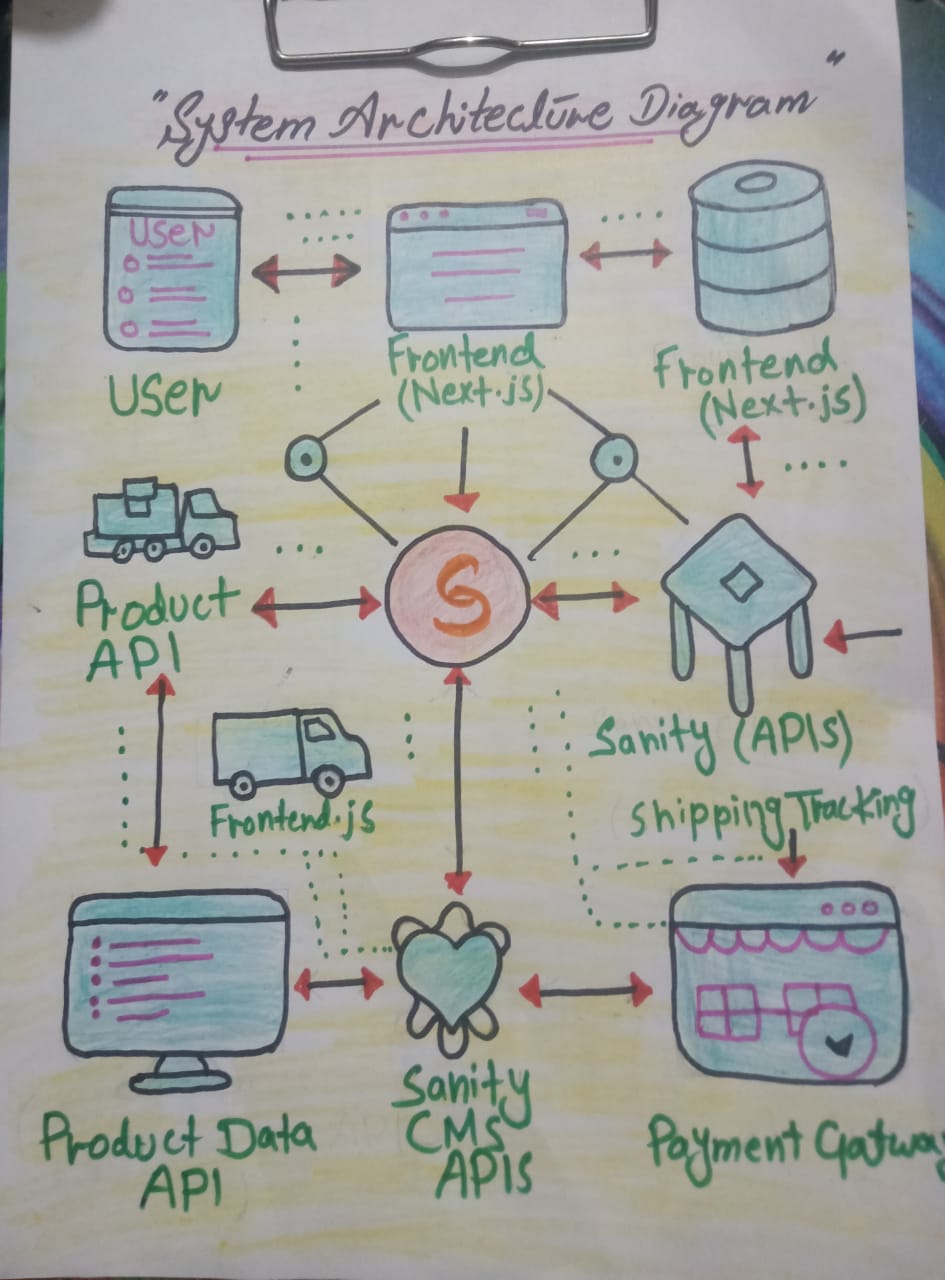 "System Architecture Diagram"
User
User
Frontend
(Next.js)
Frontend
(Next.js)
S
Product
API
Sanity (APIs)
Frontend.js
Shipping Tracking
Product Data
API
Sanity
CMS
APIs
Payment Gatway